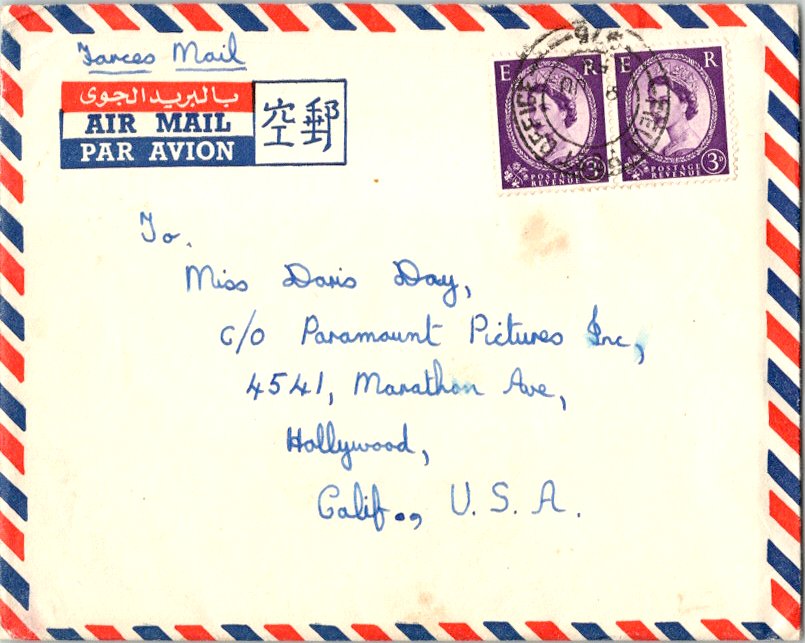 Forces Mail
بالبريد الجوى
AIR MAIL
PAR AVION
空郵
E R
POSTAGE
REVENUE
E R
POSTAGE 3D
REVENUE
FIELD POST OFFICE
976
To.
Miss Doris Day,
C/O Paramount Pictures Inc,
4541, Marathon Ave,
Hollywood,
Calif., U. S. A.